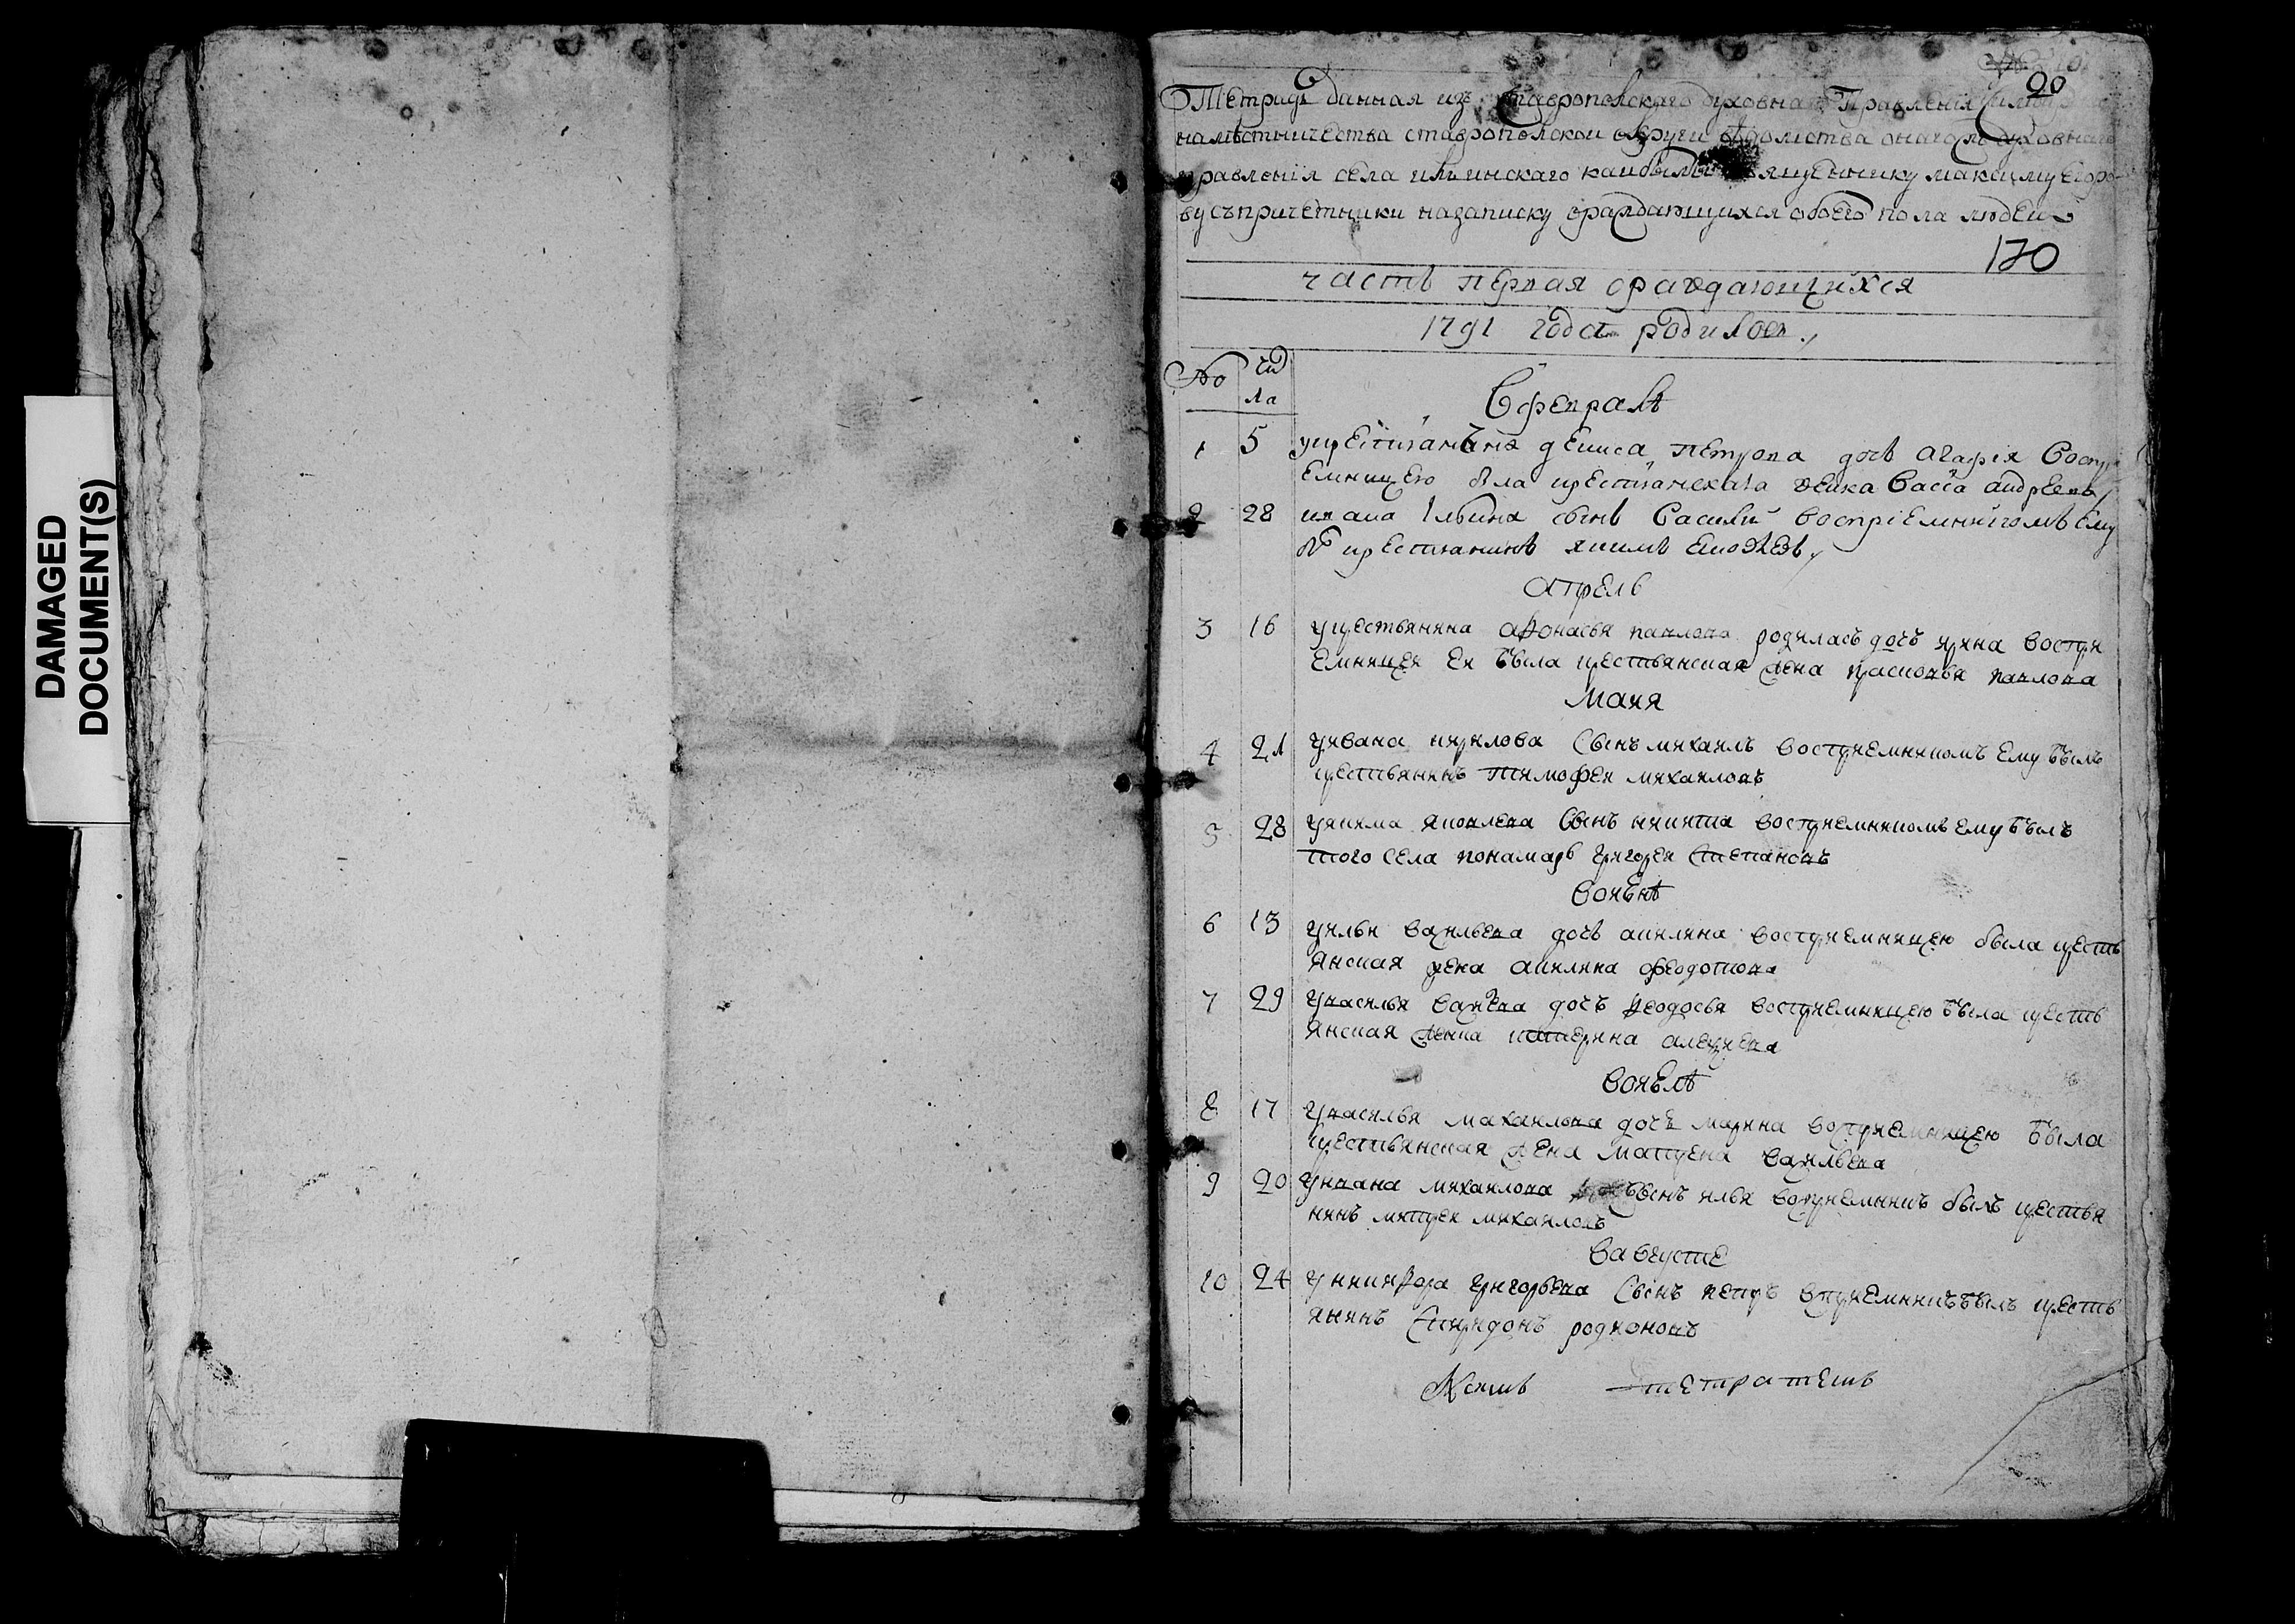 DAMAGED
DOCUMENT(S)
20
Тетрадь данная изъ Ставропольскаго духовнаго Правленiя
наместничества ставропольской округи ведомства онаго духовнаго
правленiя села ильинскаго кандалы священнику максиму Егоро
ву съпричетники назаписку ораждающихся обоего пола людей
170
часть первая ораждающихся
1791 года родилось
№ числа
Вфевралѣ
1 5 укрестьянина дениса петрова дочь агафiя Воспри
емницею была крестьянская женка Васса андреева
2 28 ивана Ильина сынъ Василий воспрiемникомъ ему
был крестianинъ якимъ
апрель
3 16 укрестьянина афонасья павлова родилась дочь ирина воспри
емницея ея была крестьянская жена прасковья павлова
маия
4 21 уивана кирилова Сынъ михаилъ восприемникомъ ему былъ
крестьянинъ тимофеи михаиловъ
5 28 уякима яковлева Сынъ никита восприемникомъ ему былъ
того села понамарь григореи Степановъ
воиюнѣ
6 13 уильи васильева дочь акилина восприемницею была кресть
янская жена акилина феодотова
7 29 увасилья дочь феодосья восприемницею была кресть
янская женка катерина алексеева
воиюлѣ
8 17 увасилья михаилова дочь марина восприемницею была
крестьянская жена матрена васильева
9 20 уивана михаилова сынъ илья восприемникъ былъ крестья
нинъ митреи михаиловъ
вавгусте
10 24 уникифора григорьева Сынъ петръ восприемникъ былъ кресть
янинъ Спиридонъ родионовъ